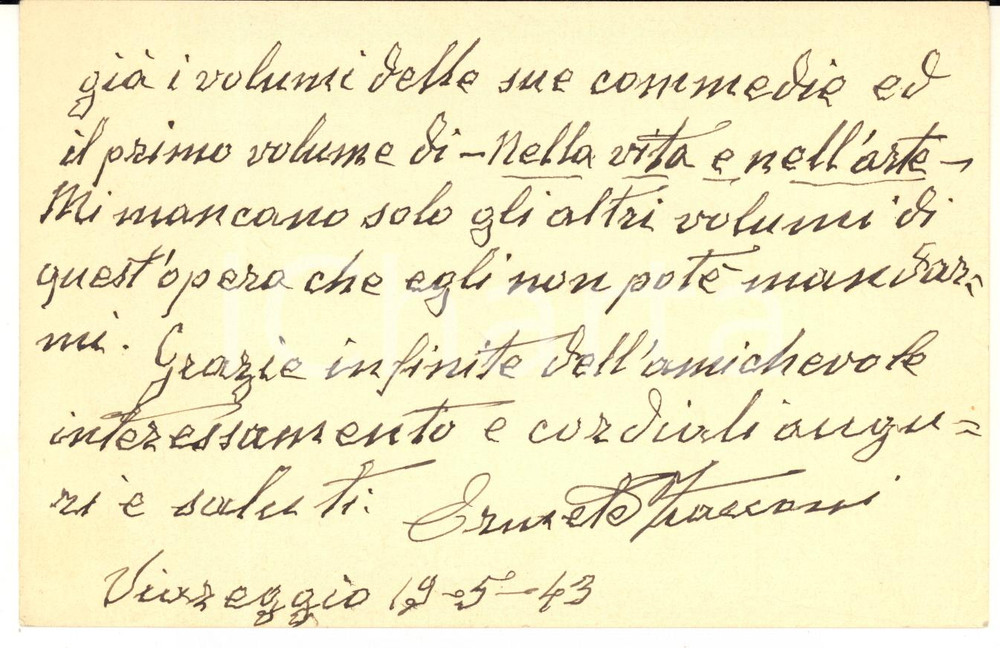 già i volumi delle sue commedie ed
il primo volume di - Nella vita e nell'arte -
Mi mancano solo gli altri volumi di
quest'opera che egli non potè mandar-
mi. Grazie infinite dell'amichevole
interessamento e cordiali augu=
ri e saluti.
Viareggio 19-5-43